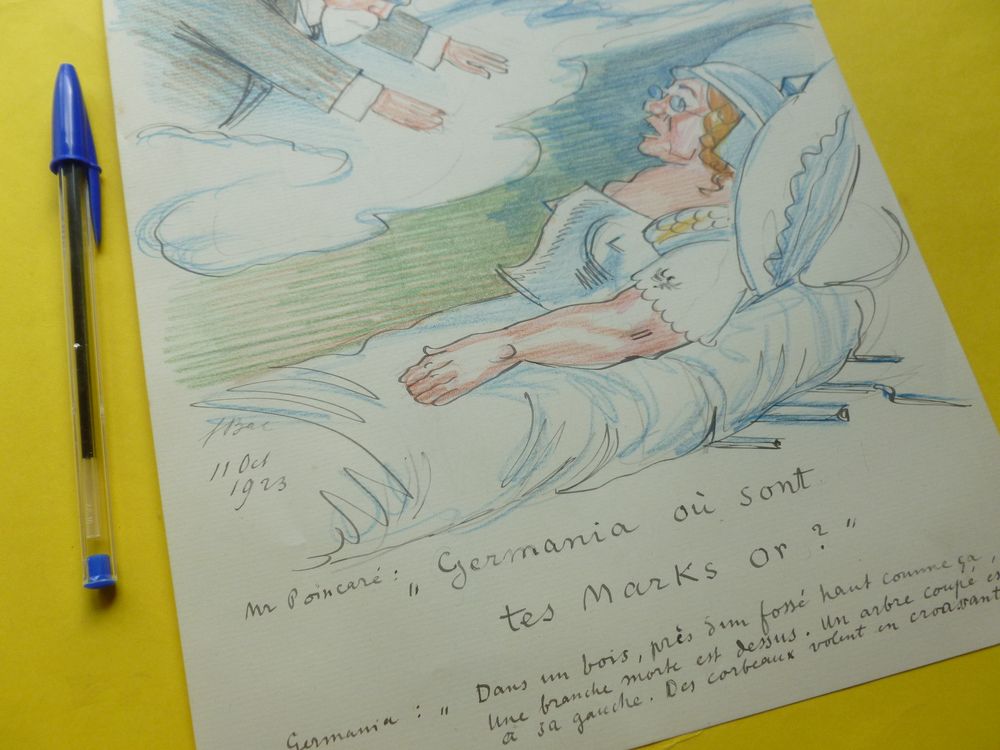 JBac
11 Oct
1923
Mr Poincaré : „ Germania où sont
tes Marks or ? "
Germania : „ Dans un bois, près d'un fossé haut comme ça,
Une branche morte est dessus. Un arbre coupé es
à sa gauche. Des corbeaux volent en croassant